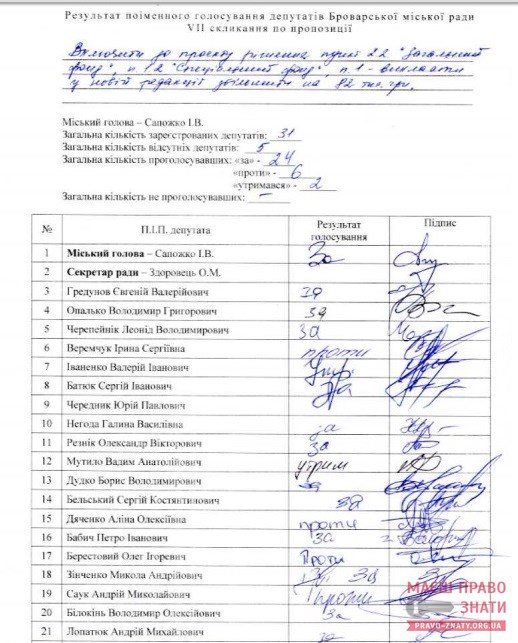 Результат поіменного голосування депутатів Броварської міської ради
VII скликання по пропозиції
Включити до проєкту рішення пункт 2.2 "Загальний
фонд", п 1.2 "Спеціальний фонд", п 1 - викласти
у новій редакції збільшити на 82 тис. грн.
Міський голова – Сапожко І.В.
Загальна кількість зареєстрованих депутатів: 31
Загальна кількість відсутніх депутатів: 5
Загальна кількість проголосувавших: «за» - 24
«проти» - 6
«утримався» - 2
Загальна кількість не проголосувавших: –
№ П.І.П. депутата Результат голосування Підпис
1 Міський голова – Сапожко І.В. За
2 Секретар ради – Здоровець О.М.
3 Гредунов Євгеній Валерійович за
4 Опалько Володимир Григорович за
5 Черепейнік Леонід Володимирович за
6 Веремчук Ірина Сергіївна проти
7 Іваненко Валерій Іванович
8 Батюк Сергій Іванович За
9 Чередник Юрій Павлович
10 Негода Галина Василівна за
11 Резнік Олександр Вікторович за
12 Мутило Вадим Анатолійович утрим
13 Дудко Борис Володимирович за
14 Бельський Сергій Костянтинович за
15 Дяченко Аліна Олексіївна проти
16 Бабич Петро Іванович за
17 Берестовий Олег Ігоревич Проти
18 Зінченко Микола Андрійович За
19 Саук Андрій Миколайович проти
20 Білокінь Володимир Олексійович За
21 Лопатюк Андрій Михайлович за
МАЄШ ПРАВО
ЗНАТИ
PRAVO-ZNATY.ORG.UA